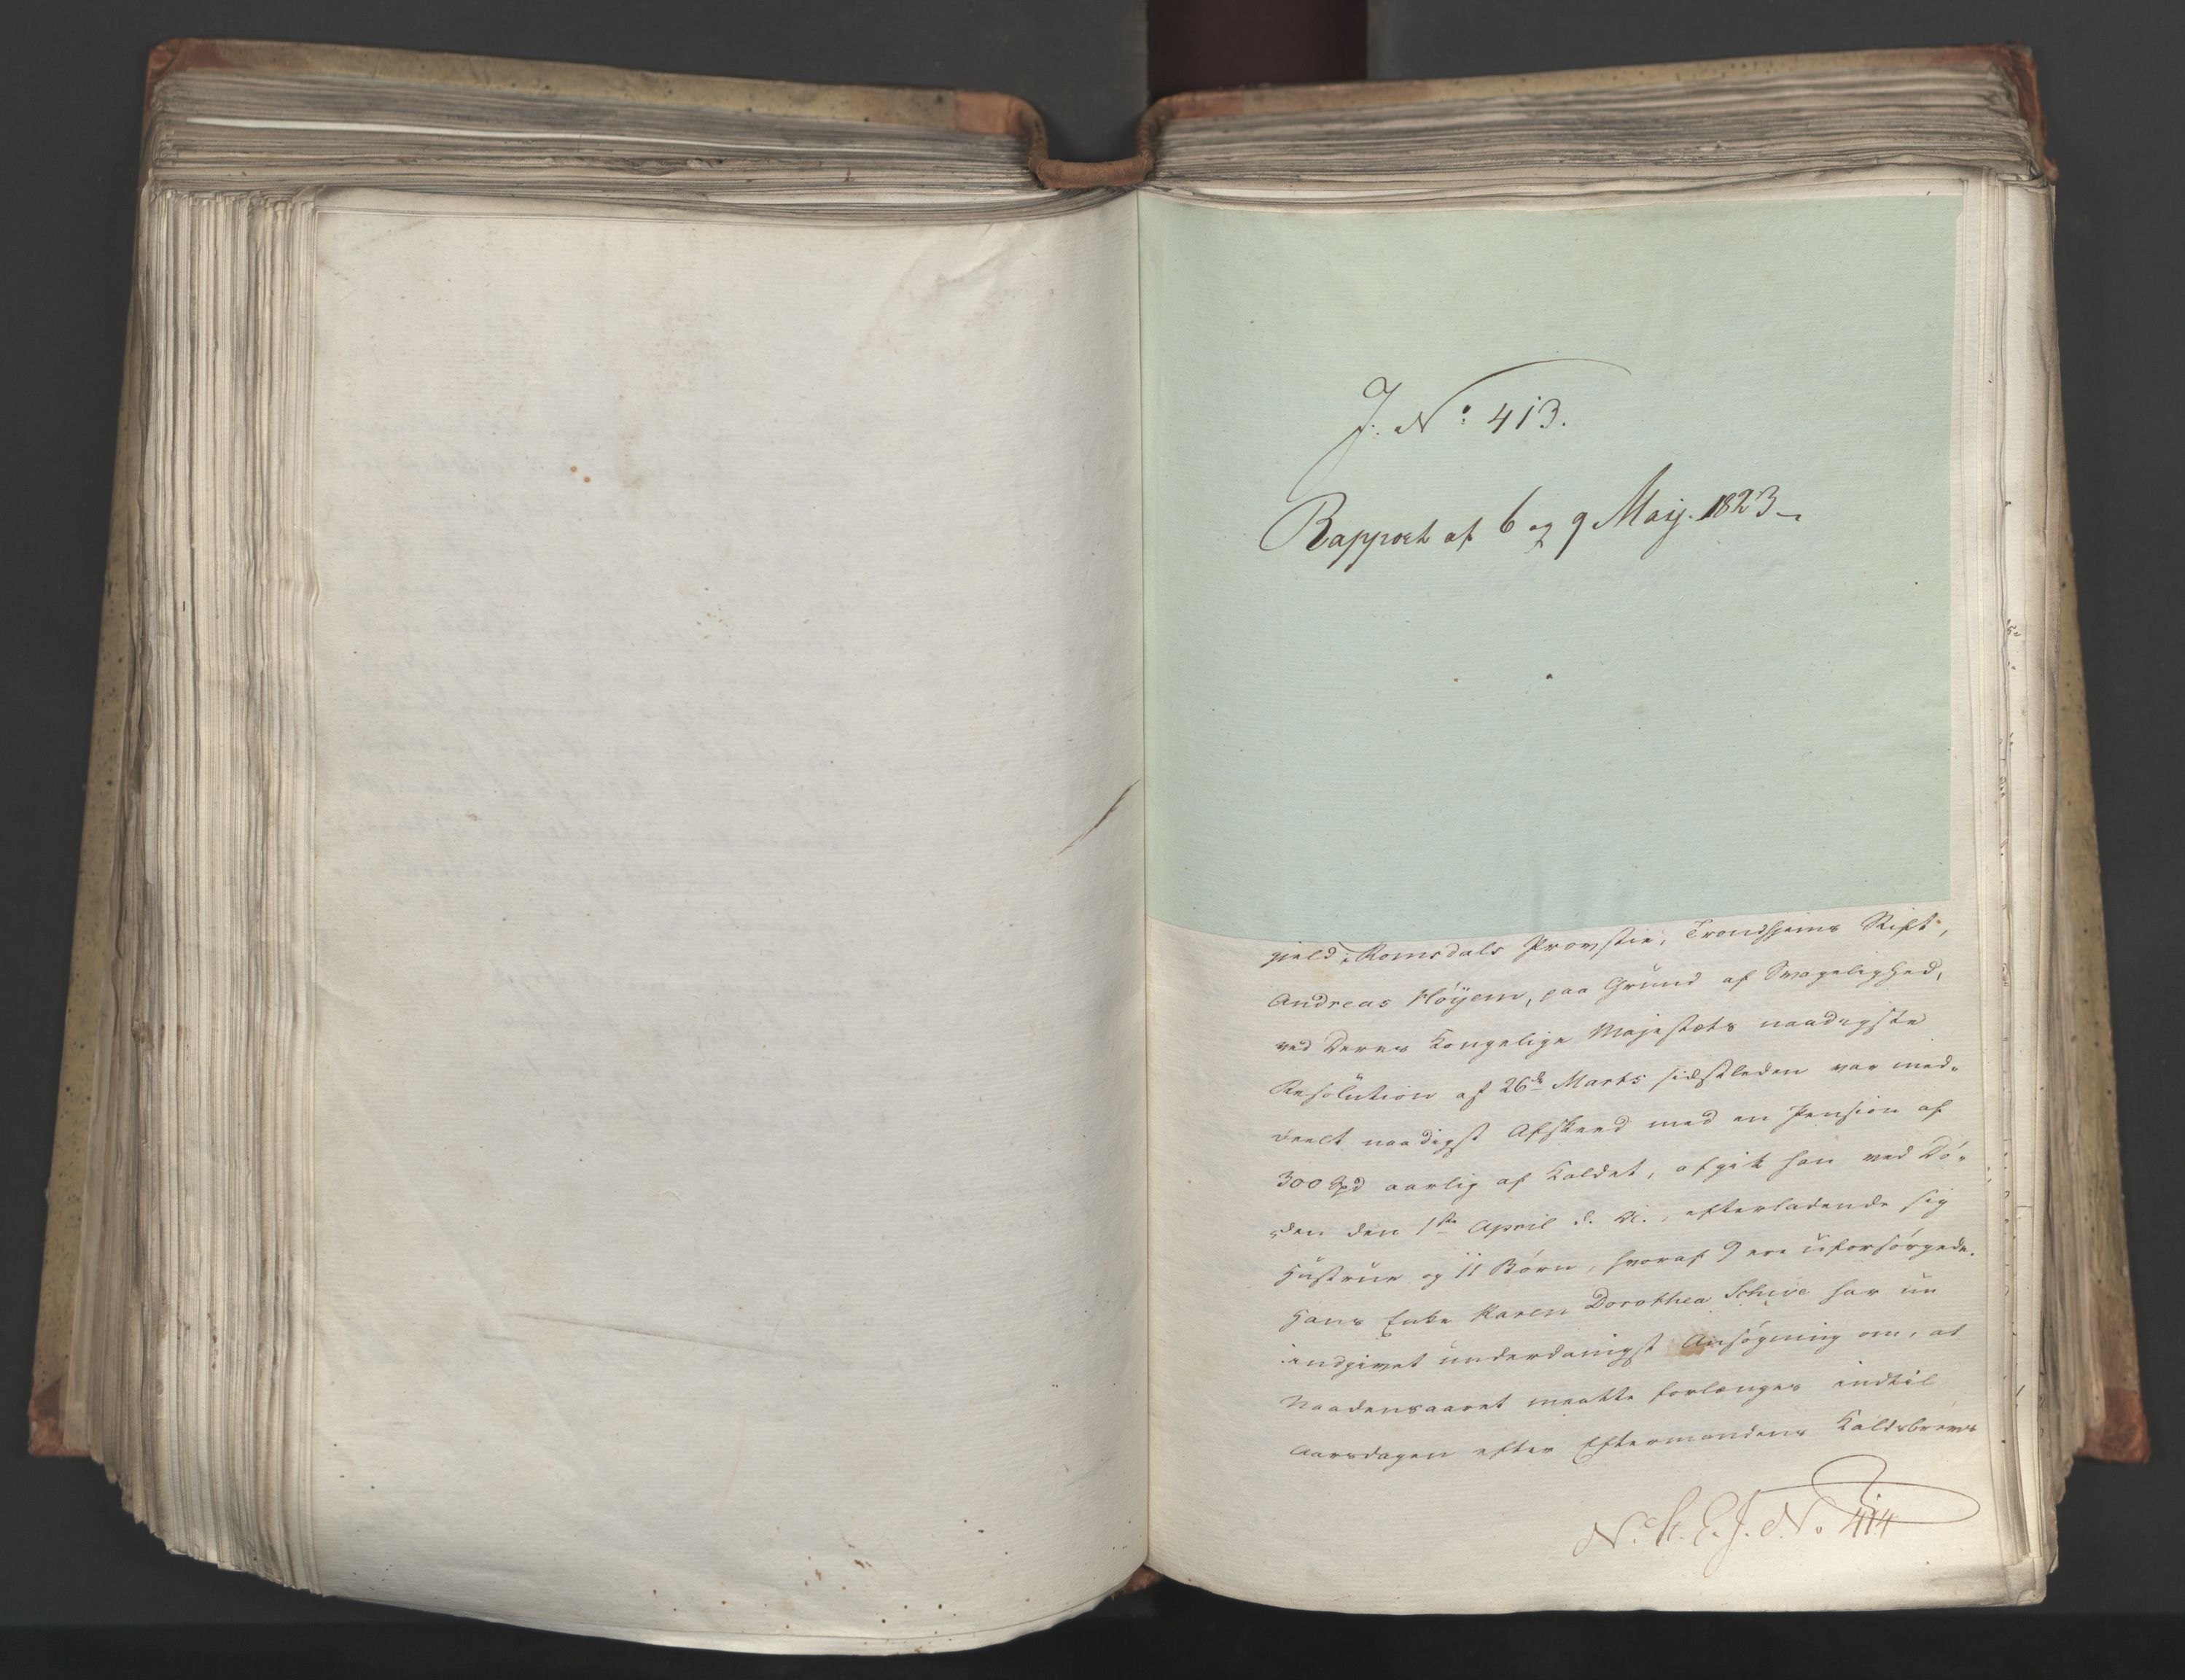 J. No 413.
Rapport af 6 og 9 Maij. 1823
gield i Romsdals Provstie, Trondhjems Stift,
Andreas Höyem, paa Grund af Svagelighed,
ved Deres Kongelige Majestæts naadigste
Resolution af 26de Marts sidstleden var med-
deelt naadigst Afskeed med en Pension af
300 Spd aarlig af Kaldet, afgik han ved Dö-
den den 1ste April d. A., efterladende sig
Hustrue og 11 Börn, hvoraf 9 ere uforsörgede.
Hans Enke Karen Dorothea Schive har nu
indgivet underdanigst Ansögning om, at
Naadensaaret maatte forlænges indtil
Aarsdagen efter Eftermandens Kaldsbrevs
N. St. E. J. No 414